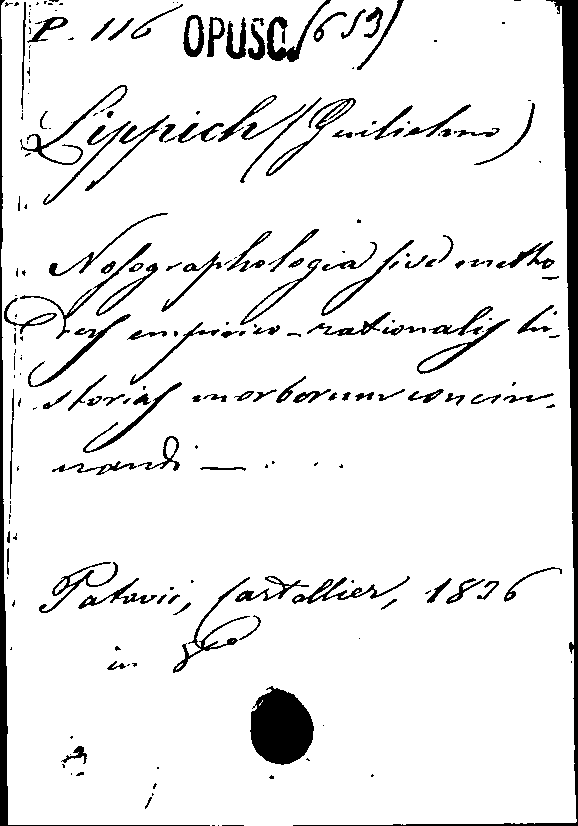 P. 116 OPUSC. (653)
Lippich (Guilielmo)
Nosographologia sive metho-
dus empirico-rationalis hi-
storias morborum concin-
nandi —
Patavii, Cartallier, 1836
in 8vo